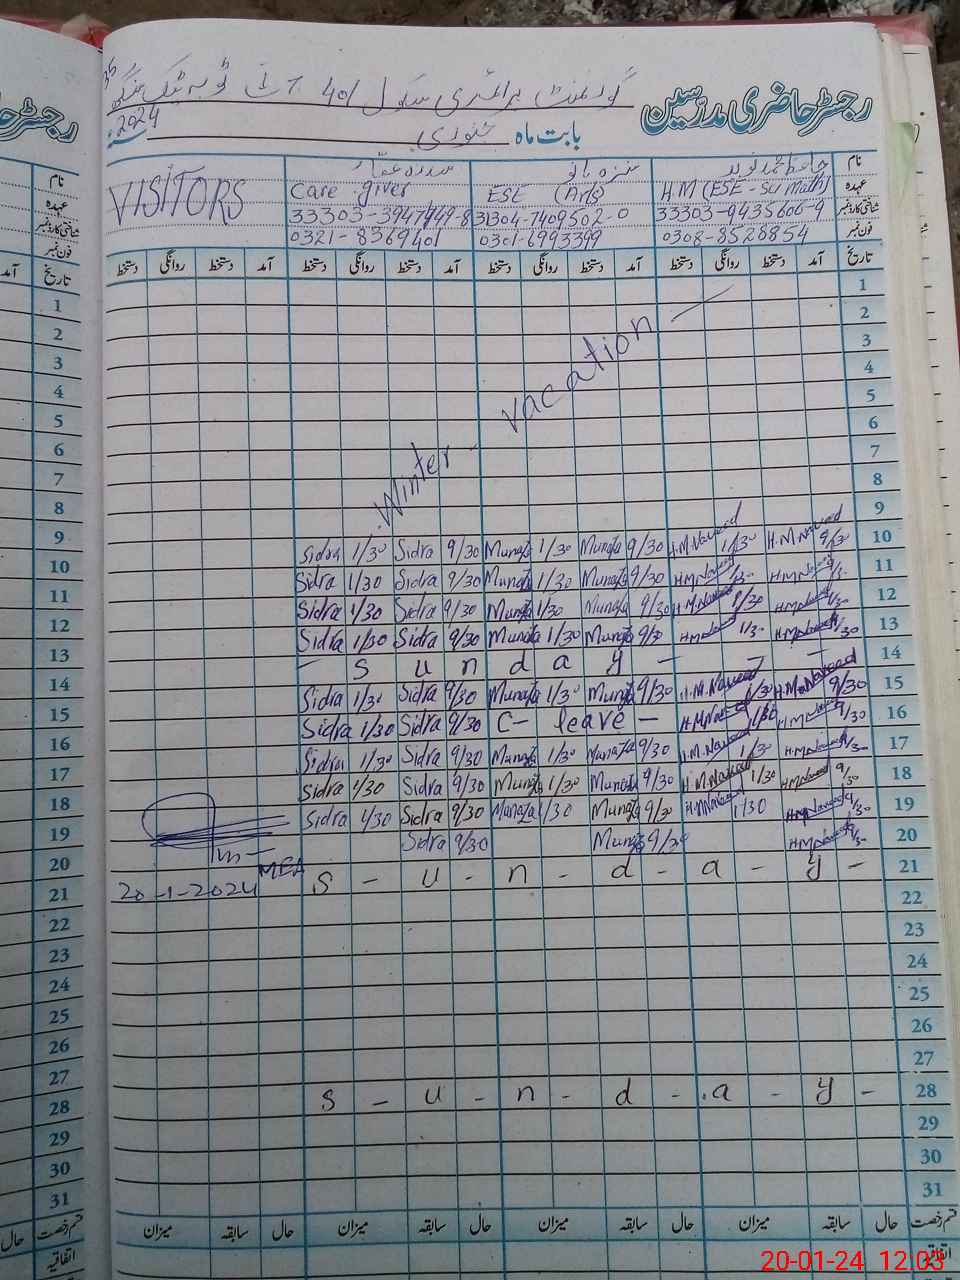 رجسٹر حاضری مدرسین گورنمنٹ پرائمری سکول 401 ج ب ٹوبہ ٹیک سنگھ
بابت ماہ جنوری 2024ء
نام حافظ محمد نوید منزہ بانو سدرہ VISITORS
عہدہ H.M (ESE - Sci math) ESE (Arts) Care giver
شناختی کارڈ نمبر 33303-9435606-9 31304-7409502-0 33303-3947949-8
فون نمبر 0308-8528854 0301-6993399 0321-8369401
تاریخ آمد دستخط روانگی دستخط آمد دستخط روانگی دستخط آمد دستخط روانگی دستخط آمد دستخط روانگی دستخط
1
2
3
4
5
6
7
8
9
Winter - vacation -
Sidra 1/30 Sidra 9/30 Munaza 1/30 Munaza 9/30 H.M.Naveed 1/30 H.M.Naveed 9/30 10
Sidra 1/30 Sidra 9/30 Munaza 1/30 Munaza 9/30 H.M.Naveed 1/30 H.M.Naveed 9/30 11
Sidra 1/30 Sidra 9/30 Munaza 1/30 Munaza 9/30 H.M.Naveed 1/30 H.M.Naveed 9/30 12
Sidra 1/30 Sidra 9/30 Munaza 1/30 Munaza 9/30 H.M.Naveed 1/30 H.M.Naveed 9/30 13
- S u n d a y - - - 14
Sidra 1/30 Sidra 9/30 Munaza 1/30 Munaza 9/30 H.M.Naveed 1/30 H.M.Naveed 9/30 15
Sidra 1/30 Sidra 9/30 C- leave - H.M.Naveed 1/30 H.M.Naveed 9/30 16
Sidra 1/30 Sidra 9/30 Munaza 1/30 Munaza 9/30 H.M.Naveed 1/30 H.M.Naveed 9/30 17
Sidra 1/30 Sidra 9/30 Munaza 1/30 Munaza 9/30 H.M.Naveed 1/30 H.M.Naveed 9/30 18
Sidra 1/30 Sidra 9/30 Munaza 1/30 Munaza 9/30 H.M.Naveed 1/30 H.M.Naveed 9/30 19
Sidra 9/30 Munaza 9/30 H.M.Naveed 9/30 20
MEA
20-1-2024 S - u - n - d - a - y - 21
22
23
24
25
26
27
S - u - n - d - a - y - 28
29
30
31
قسم رخصت حال سابقہ میزان حال سابقہ میزان حال سابقہ میزان حال سابقہ میزان
اتفاقیہ
رجسٹر حا
نام
عہدہ
شناختی کارڈ نمبر
فون نمبر
تاریخ آمد
1
2
3
4
5
6
7
8
9
10
11
12
13
14
15
16
17
18
19
20
21
22
23
24
25
26
27
28
29
30
31
قسم رخصت حال
اتفاقیہ
20-01-24 12:03